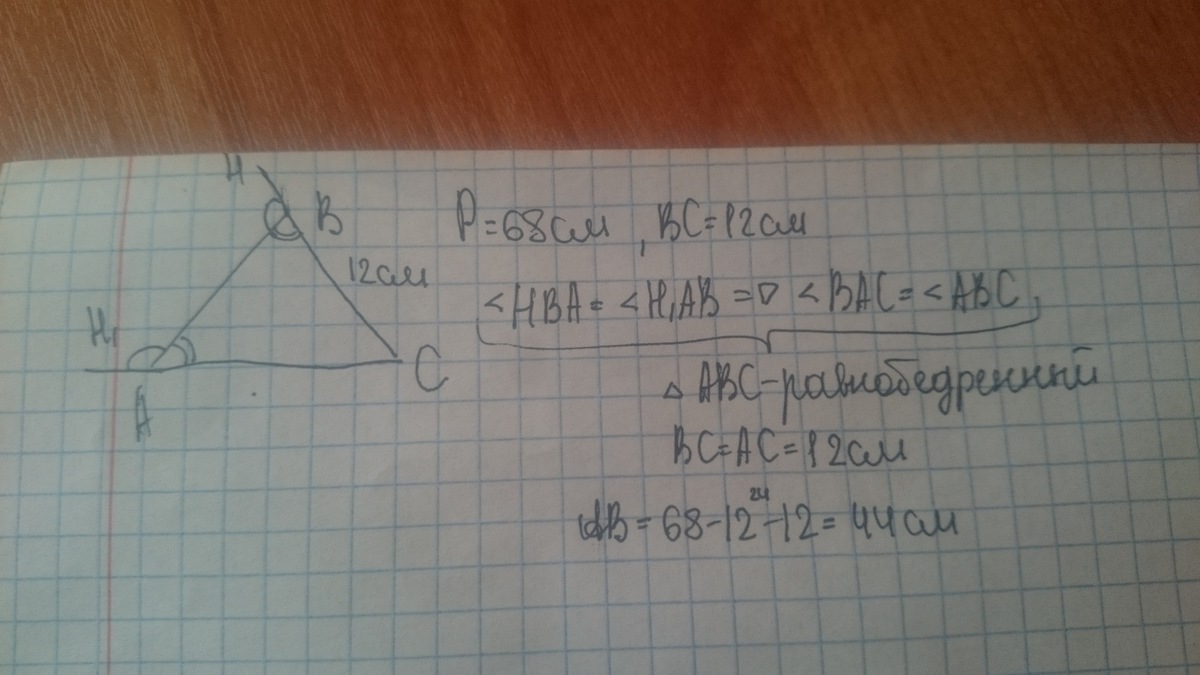 H
B
12см
H₁
A
C
P=68см, BC=12см
<HBA= <H₁AB => <BAC= <ABC,
△ ABC-равнобедренный
BC=AC=12см
24
AB= 68-12-12= 44см